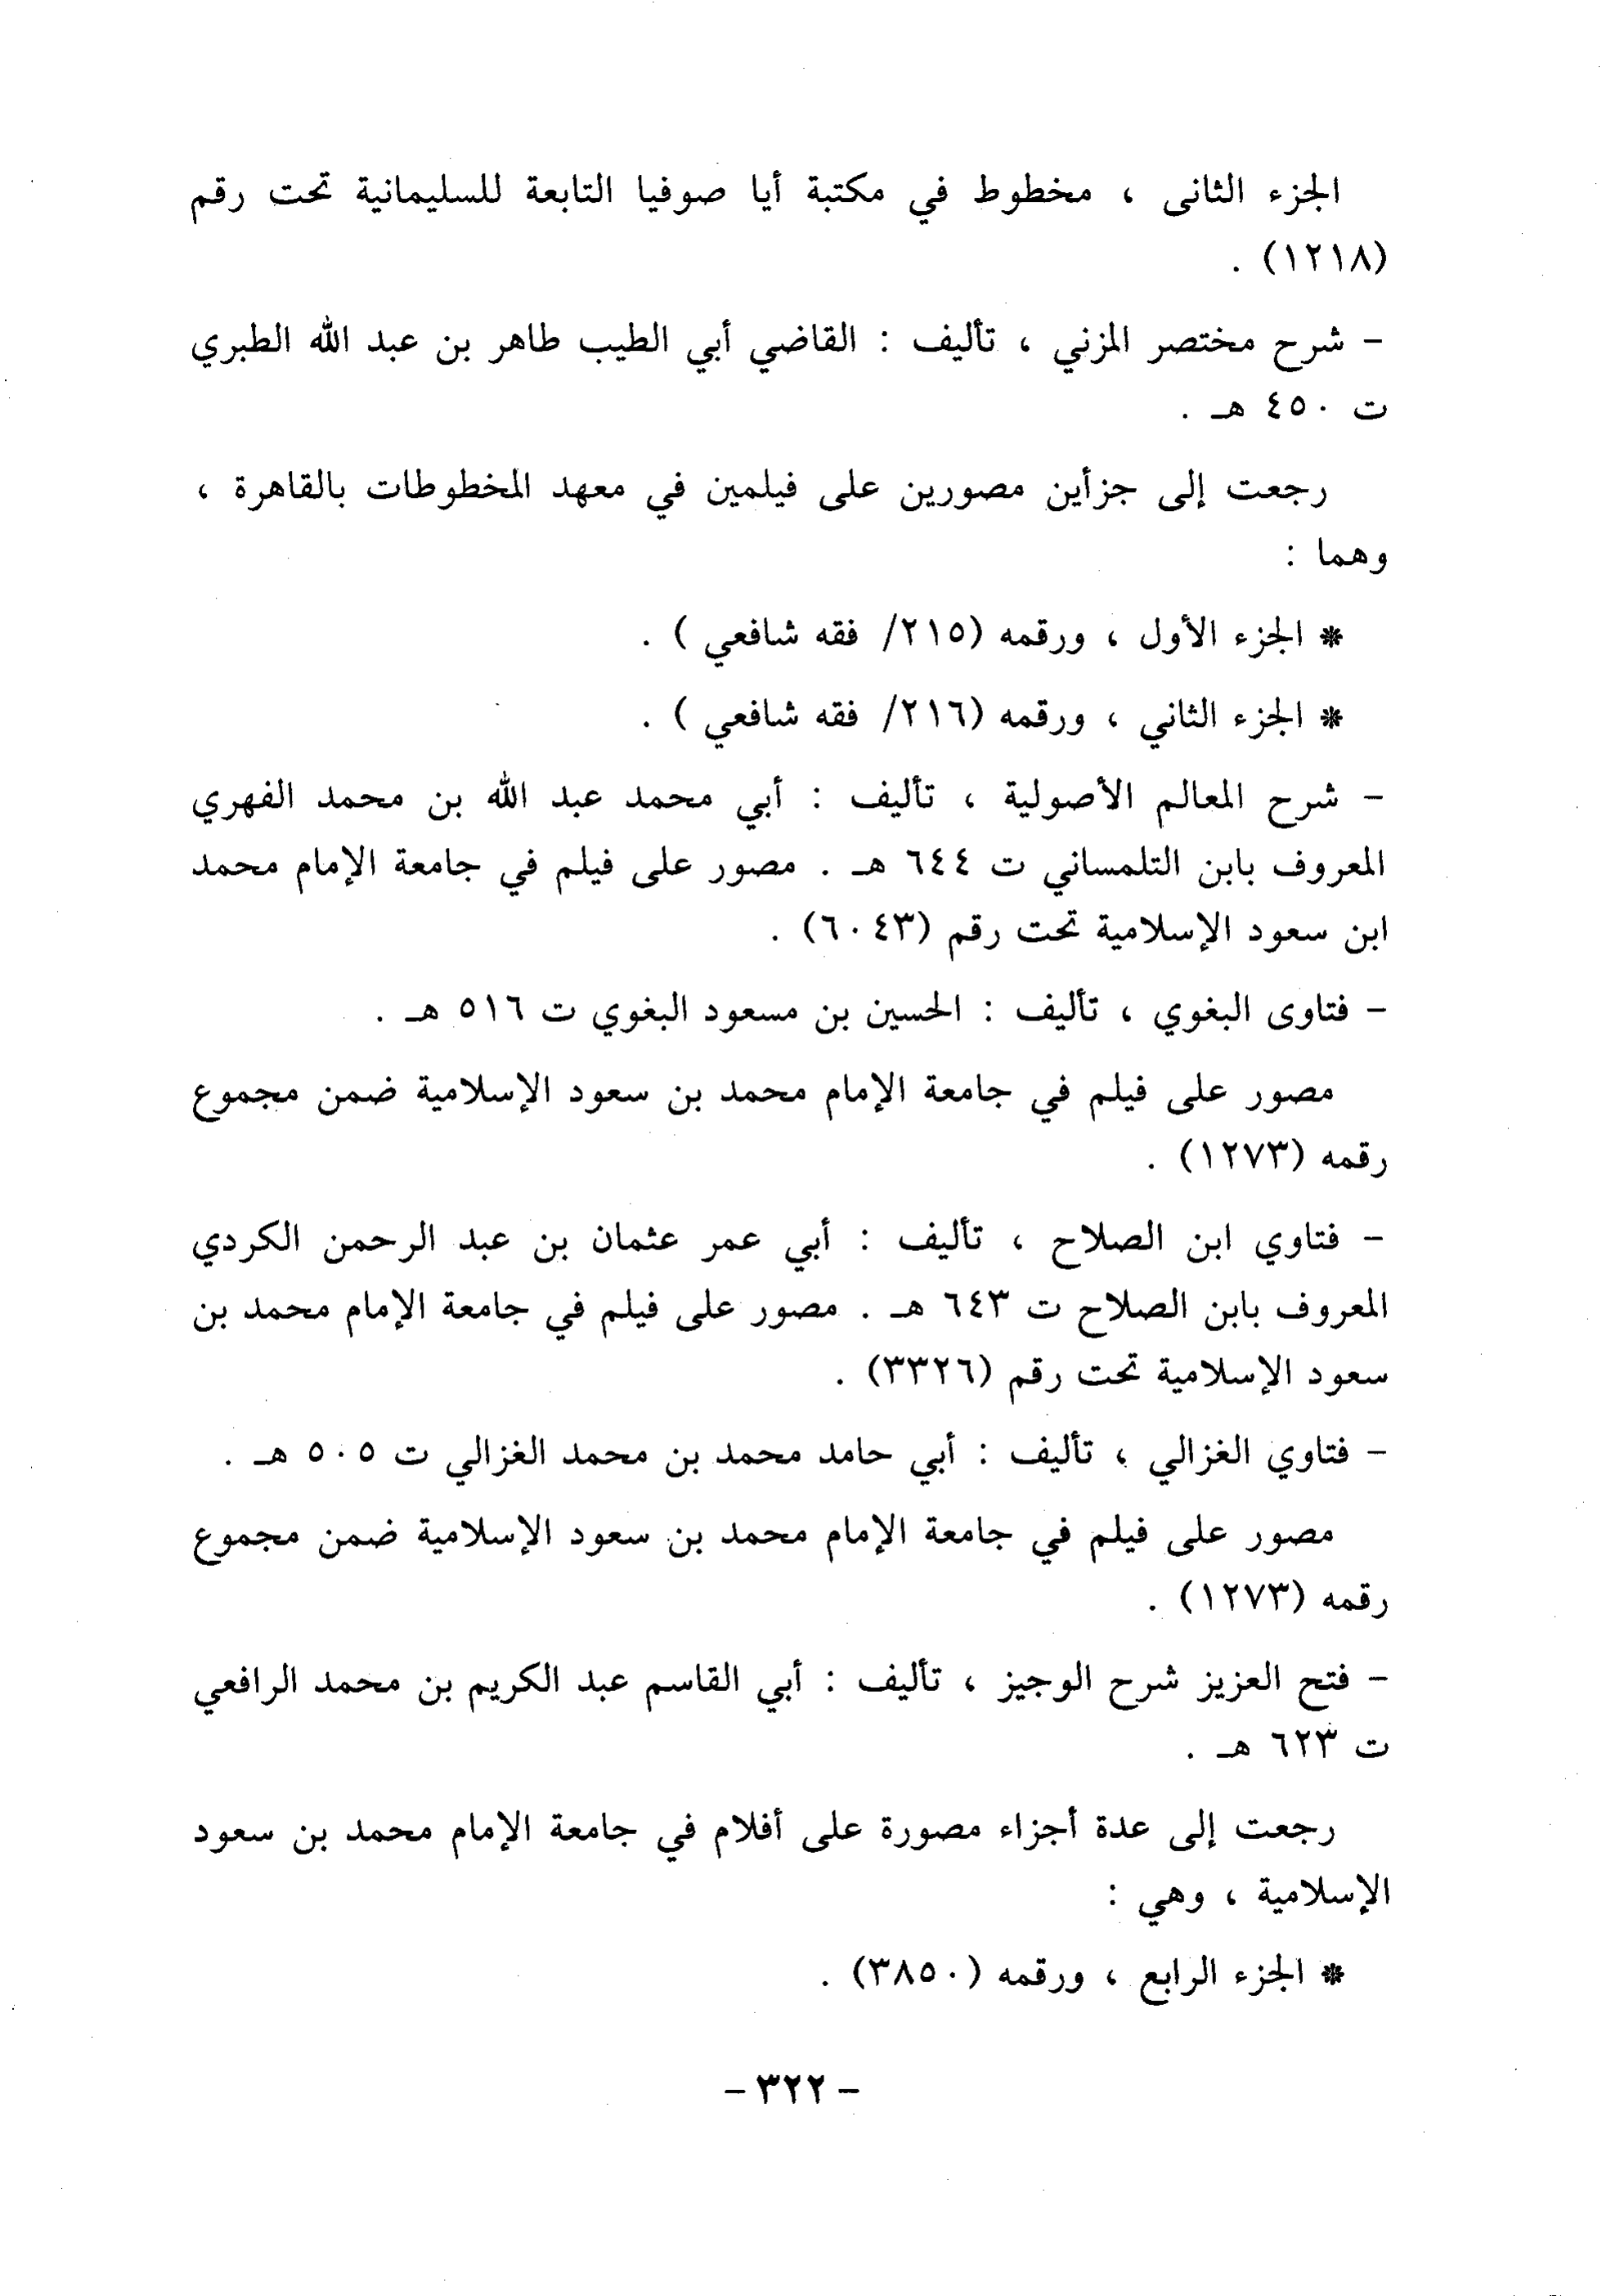 الجزء الثانى ، مخطوط في مكتبة أيا صوفيا التابعة للسليمانية تحت رقم
(١٢١٨) .
- شرح مختصر المزني ، تأليف : القاضي أبي الطيب طاهر بن عبد الله الطبري
ت ٤٥٠ هـ .
رجعت إلى جزأين مصورين على فيلمين في معهد المخطوطات بالقاهرة ،
وهما :
* الجزء الأول ، ورقمه (٢١٥/ فقه شافعي ) .
* الجزء الثاني ، ورقمه (٢١٦/ فقه شافعي ) .
- شرح المعالم الأصولية ، تأليف : أبي محمد عبد الله بن محمد الفهري
المعروف بابن التلمساني ت ٦٤٤ هـ . مصور على فيلم في جامعة الإمام محمد
ابن سعود الإسلامية تحت رقم (٦٠٤٣) .
- فتاوى البغوي ، تأليف : الحسين بن مسعود البغوي ت ٥١٦ هـ .
مصور على فيلم في جامعة الإمام محمد بن سعود الإسلامية ضمن مجموع
رقمه (١٢٧٣) .
- فتاوي ابن الصلاح ، تأليف : أبي عمر عثمان بن عبد الرحمن الكردي
المعروف بابن الصلاح ت ٦٤٣ هـ . مصور على فيلم في جامعة الإمام محمد بن
سعود الإسلامية تحت رقم (٣٣٢٦) .
- فتاوي الغزالي ، تأليف : أبي حامد محمد بن محمد الغزالي ت ٥٠٥ هـ .
مصور على فيلم في جامعة الإمام محمد بن سعود الإسلامية ضمن مجموع
رقمه (١٢٧٣) .
- فتح العزيز شرح الوجيز ، تأليف : أبي القاسم عبد الكريم بن محمد الرافعي
ت ٦٢٣ هـ .
رجعت إلى عدة أجزاء مصورة على أفلام في جامعة الإمام محمد بن سعود
الإسلامية ، وهي :
* الجزء الرابع ، ورقمه (٣٨٥٠) .
- ٣٢٢ -